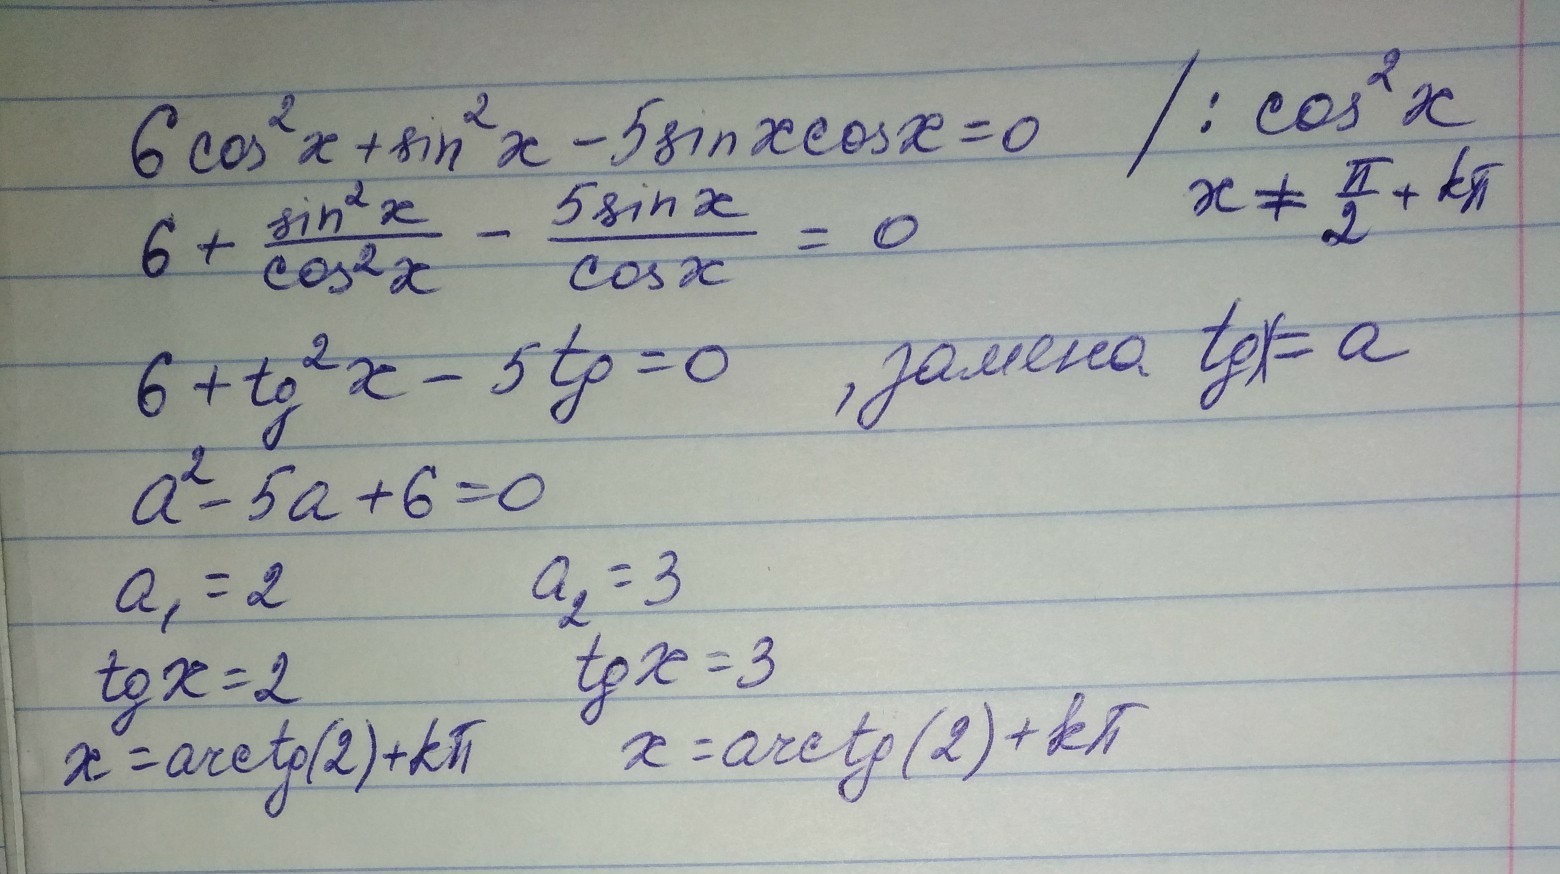 6cos²x + sin²x - 5sinxcosx = 0 / : cos²x
x ≠ π/2 + kπ
6 + sin²x/cos²x - 5sinx/cosx = 0
6 + tg²x - 5tg = 0 , замена tgx = a
a² - 5a + 6 = 0
a₁ = 2 a₂ = 3
tgx = 2 tgx = 3
x = arctg(2) + kπ x = arctg(2) + kπ